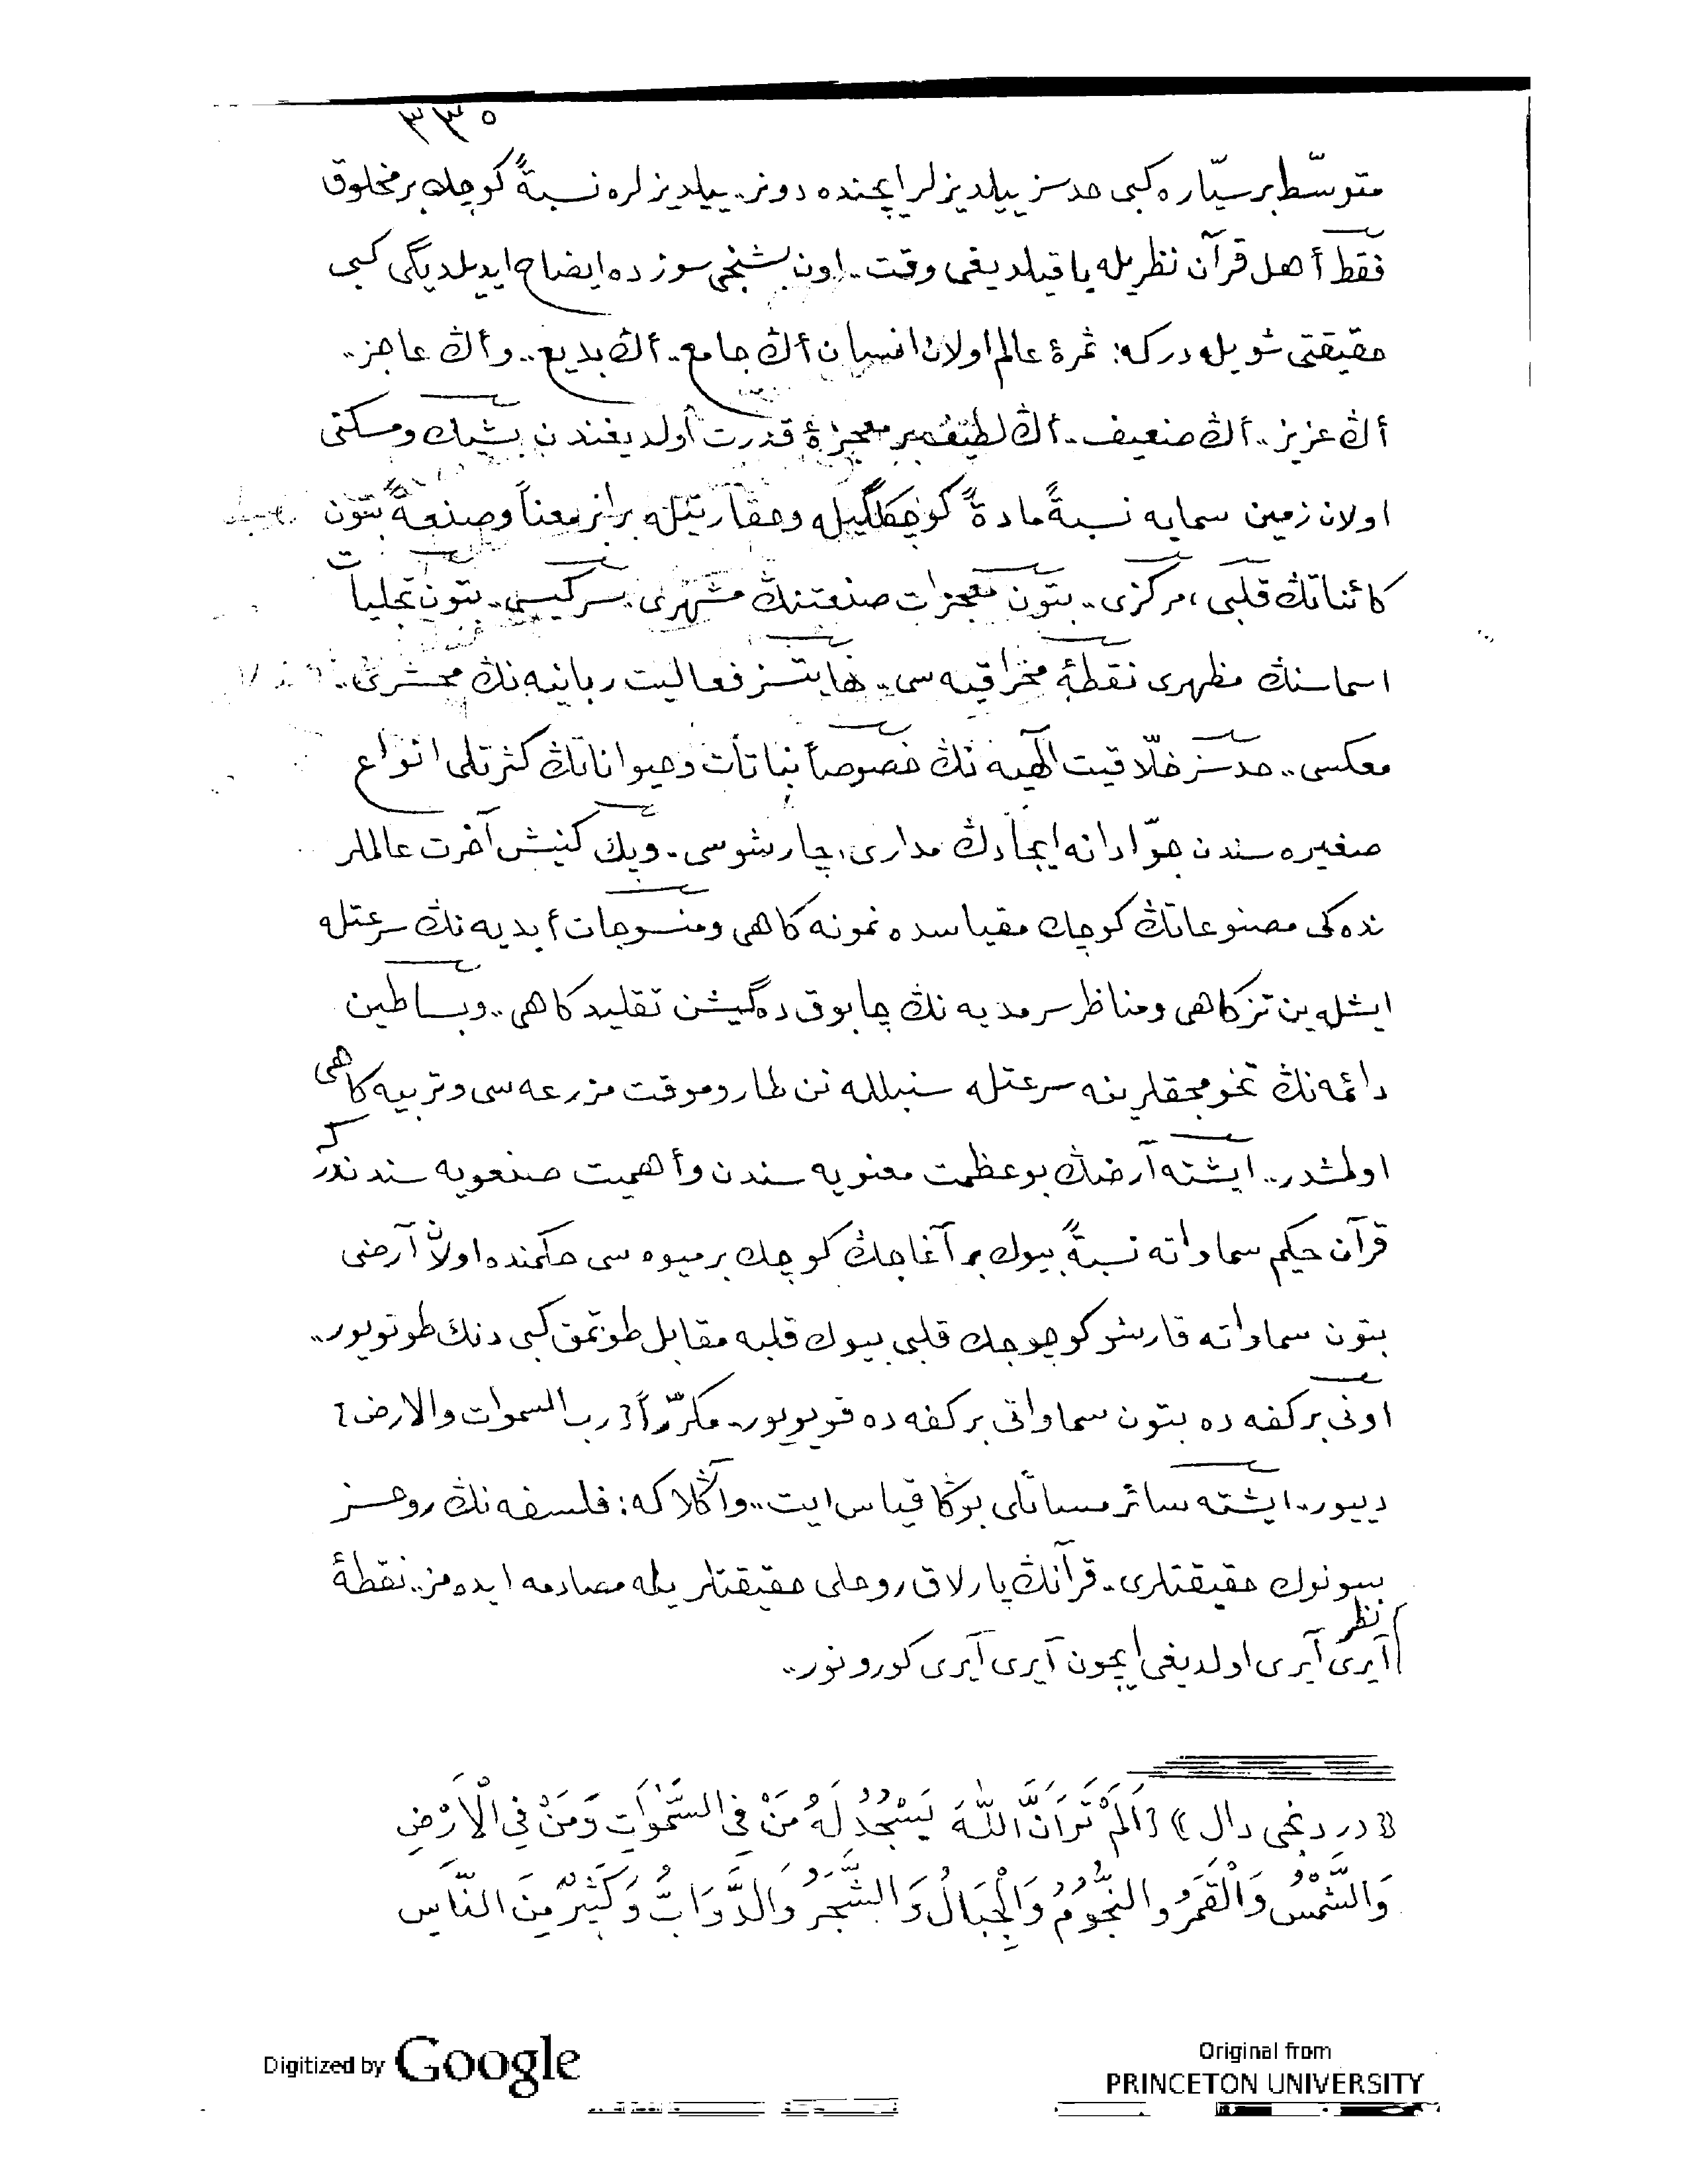 ٣٣٥
متوسّط بر سیّاره كبی حدسز ییلدیزلر ایچنده دونر.. ییلدیزلره نسبةً كوچك بر مخلوق
فقط أهل قرآن نظریله باقیلدیغی وقت.. اون بشنجی سوزده ایضاح ایدیلدیگی كبی
حقیقتی شویله دركه: ثمرۀ عالم اولان انسان أڭ جامع.. أڭ بدیع.. وأڭ عاجز..
أڭ عزیز.. أڭ ضعیف.. أڭ لطیف بر معجزۀ قدرت أولدیغندن بشیك ومسكنی
اولان زمین سمایه نسبةً مادةً كوچكلگیله وحقارتیله برابر معناً وصنعةً بتون
كائناتڭ قلبی، مركزی.. بتون معجزات صنعتنڭ مشهری. سركیسی.. بتون تجلیات
اسماسنڭ مظهری نقطۀ محراقیه سی.. نهایتسز فعالیت ربانیه نڭ محشری..
معكسی.. حدسز خلّاقیت الٰهیه نڭ خصوصاً نباتات وحیواناتڭ كثرتلی انواع
صغیره سندن جوّادانه ایجادڭ مداری، چارشوسی.. وپك كنیش آخرت عالملر
نده كی مصنوعاتڭ كوچك مقیاسده نمونه كاهی ومنسوجات أبدیه نڭ سرعتله
ایشله ین تزكاهی ومناظر سرمدیه نڭ چابوق ده گیشن تقلیدكاهی.. وبساطین
دائمه نڭ تخومجقلرینه سرعتله سنبللنه نن طار وموقت مزرعه سی وتربیه كاهی
اولمشدر.. ایشته آرضڭ بو عظمت معنویه سندن وأهمیت صنعویه سندندركه
قرآن حكیم سماواته نسبةً بیوك بر آغاجڭ كوچك بر میوه سی حكمنده اولان آرضی
بتون سماواته قارشو كوچوجك قلبی بیوك قلبه مقابل طوتمق كبی دنك طوتویور..
اونی بر كفه ده بتون سماواتی بر كفه ده قویویور.. مكرّراً [رب السموات والارض]
دییور.. ایشته سائر مسائلی بوڭا قیاس ایت.. وآڭلاكه: فلسفه نڭ روحسز
سونوك حقیقتلری.. قرآنڭ پارلاق روحلی حقیقتلریله مصادمه ایده مز.. نقطۀ
نظر
آیری آیری اولدیغی ایچون آیری آیری كورونور..
«دردنجی دال» [اَلَمْ تَرَ اَنَّ اللّٰهَ يَسْجُدُ لَهُ مَنْ فِى السَّمٰوَاتِ وَمَنْ فِي الْاَرْضِ
وَالشَّمْسُ وَالْقَمَرُ وَالنُّجُومُ وَالْجِبَالُ وَالشَّجَرُ وَالدَّوَابُّ وَكَثِيْرٌ مِنَ النَّاسِ
Digitized by Google
Original from
PRINCETON UNIVERSITY